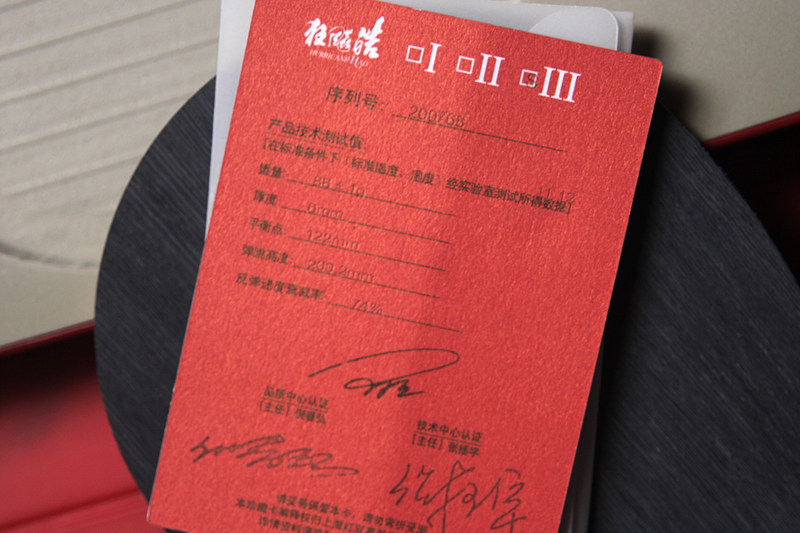 狂飚皓
HURRICANE HAO
□I □II □III
序列号: 200768
产品技术测试值
[在标准条件下(标准温度、湿度)经实验室测试所得数据]
质量 88±1g
厚度 6mm
平衡点 122mm
弹跳高度 299.2mm
反弹速度衰减率: 74%
品质中心认证
[主任]
技术中心认证
[主任] 张扬宇
请妥善保管本卡,请勿弯折受潮
本珍藏卡解释权归上海红双喜